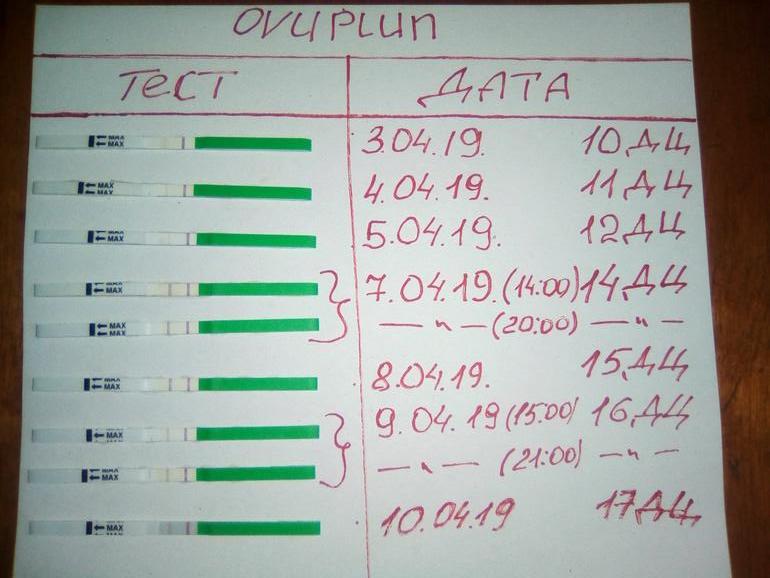 OVUPLUN
ТЕСТ ДАТА
MAX MAX 3.04.19. 10 ДЦ
MAX MAX 4.04.19. 11 ДЦ
MAX 5.04.19. 12 ДЦ
MAX MAX 7.04.19. (14:00) 14 ДЦ
MAX — " — (20:00) — " —
MAX MAX 8.04.19. 15 ДЦ
MAX MAX 9.04.19 (15:00) 16 ДЦ
MAX MAX — " — (21:00) — " —
MAX 10.04.19 17 ДЦ